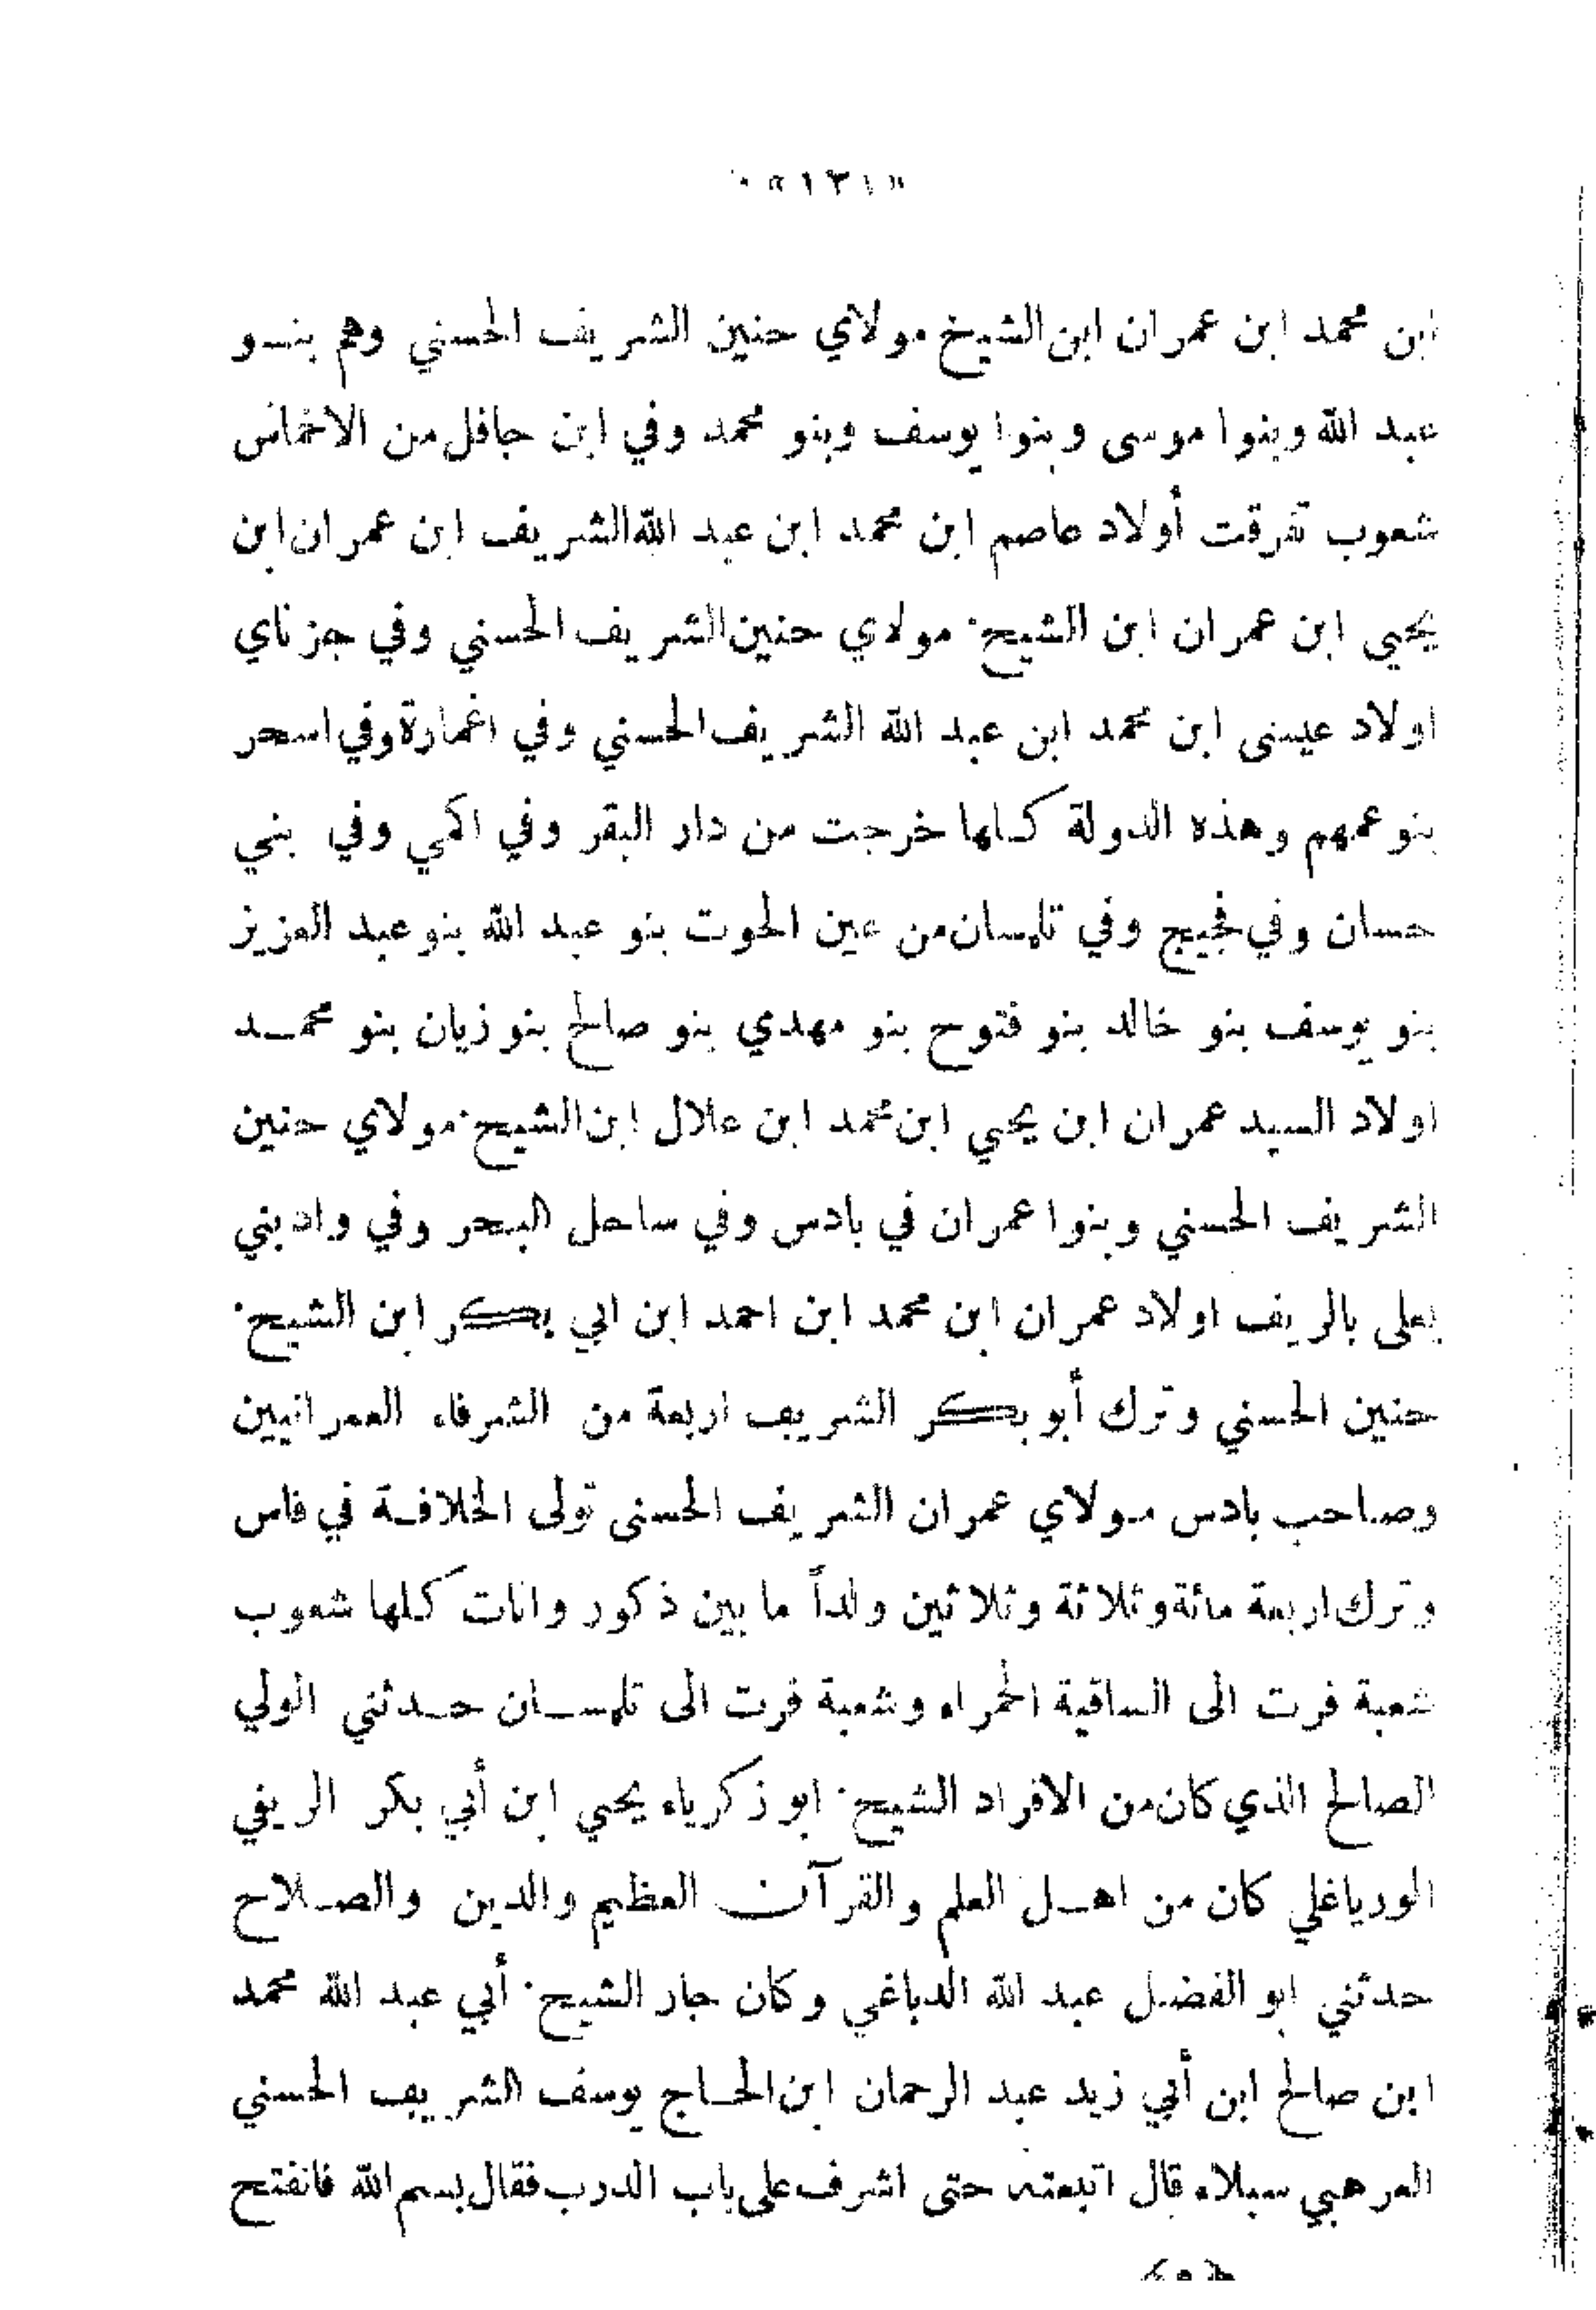 «١٣١»
ابن محمد ابن عمران ابن الشيخ مولاي حنين الشريف الحسني وهم بنو
عبد الله وبنوا موسى وبنوا يوسف وبنو محمد وفي ابن جافل من الاخماس
شعوب تفرقت أولاد عاصم ابن محمد ابن عبد الله الشريف ابن عمران ابن
يحيى ابن عمران ابن الشيخ مولاي حنين الشريف الحسني وفي جزناي
اولاد عيسى ابن محمد ابن عبد الله الشريف الحسني وفي اغمارة وفي اسحر
بنو عمهم وهذه الدولة كلها خرجت من دار البقر وفي اكمي وفي بني
حسان وفي فجيج وفي تلمسان من عين الحوت بنو عبد الله بنو عبد العزيز
بنو يوسف بنو خالد بنو فتوح بنو مهدي بنو صالح بنو زيان بنو محمد
اولاد السيد عمران ابن يحيى ابن محمد ابن علال ابن الشيخ مولاي حنين
الشريف الحسني وبنوا عمران في بادس وفي ساحل البحر وفي واد بني
يعلى بالريف اولاد عمران ابن محمد ابن احمد ابن ابي بكر ابن الشيخ
حنين الحسني وترك أبو بكر الشريف اربعة من الشرفاء العمرانيين
وصاحب بادس مولاي عمران الشريف الحسنى تولى الخلافة في فاس
وترك اربعة مائة وثلاثة وثلاثين ولداً ما بين ذكور وانات كلها شعوب
شعبة فرت الى الساقية الحمراء وشعبة فرت الى تلمسان حدثني الولي
الصالح الذي كان من الافراد الشيخ ابو زكرياء يحيى ابن أبي بكر الريفي
الورياغلي كان من اهل العلم والقرآن العظيم والدين والصلاح
حدثني ابو الفضل عبد الله الدباغي وكان جار الشيخ أبي عبد الله محمد
ابن صالح ابن أبي زيد عبد الرحمان ابن الحاج يوسف الشريف الحسني
العرهبي سبلاء قال اتبعته حتى اشرف على باب الدرب فقال بسم الله فانفتح